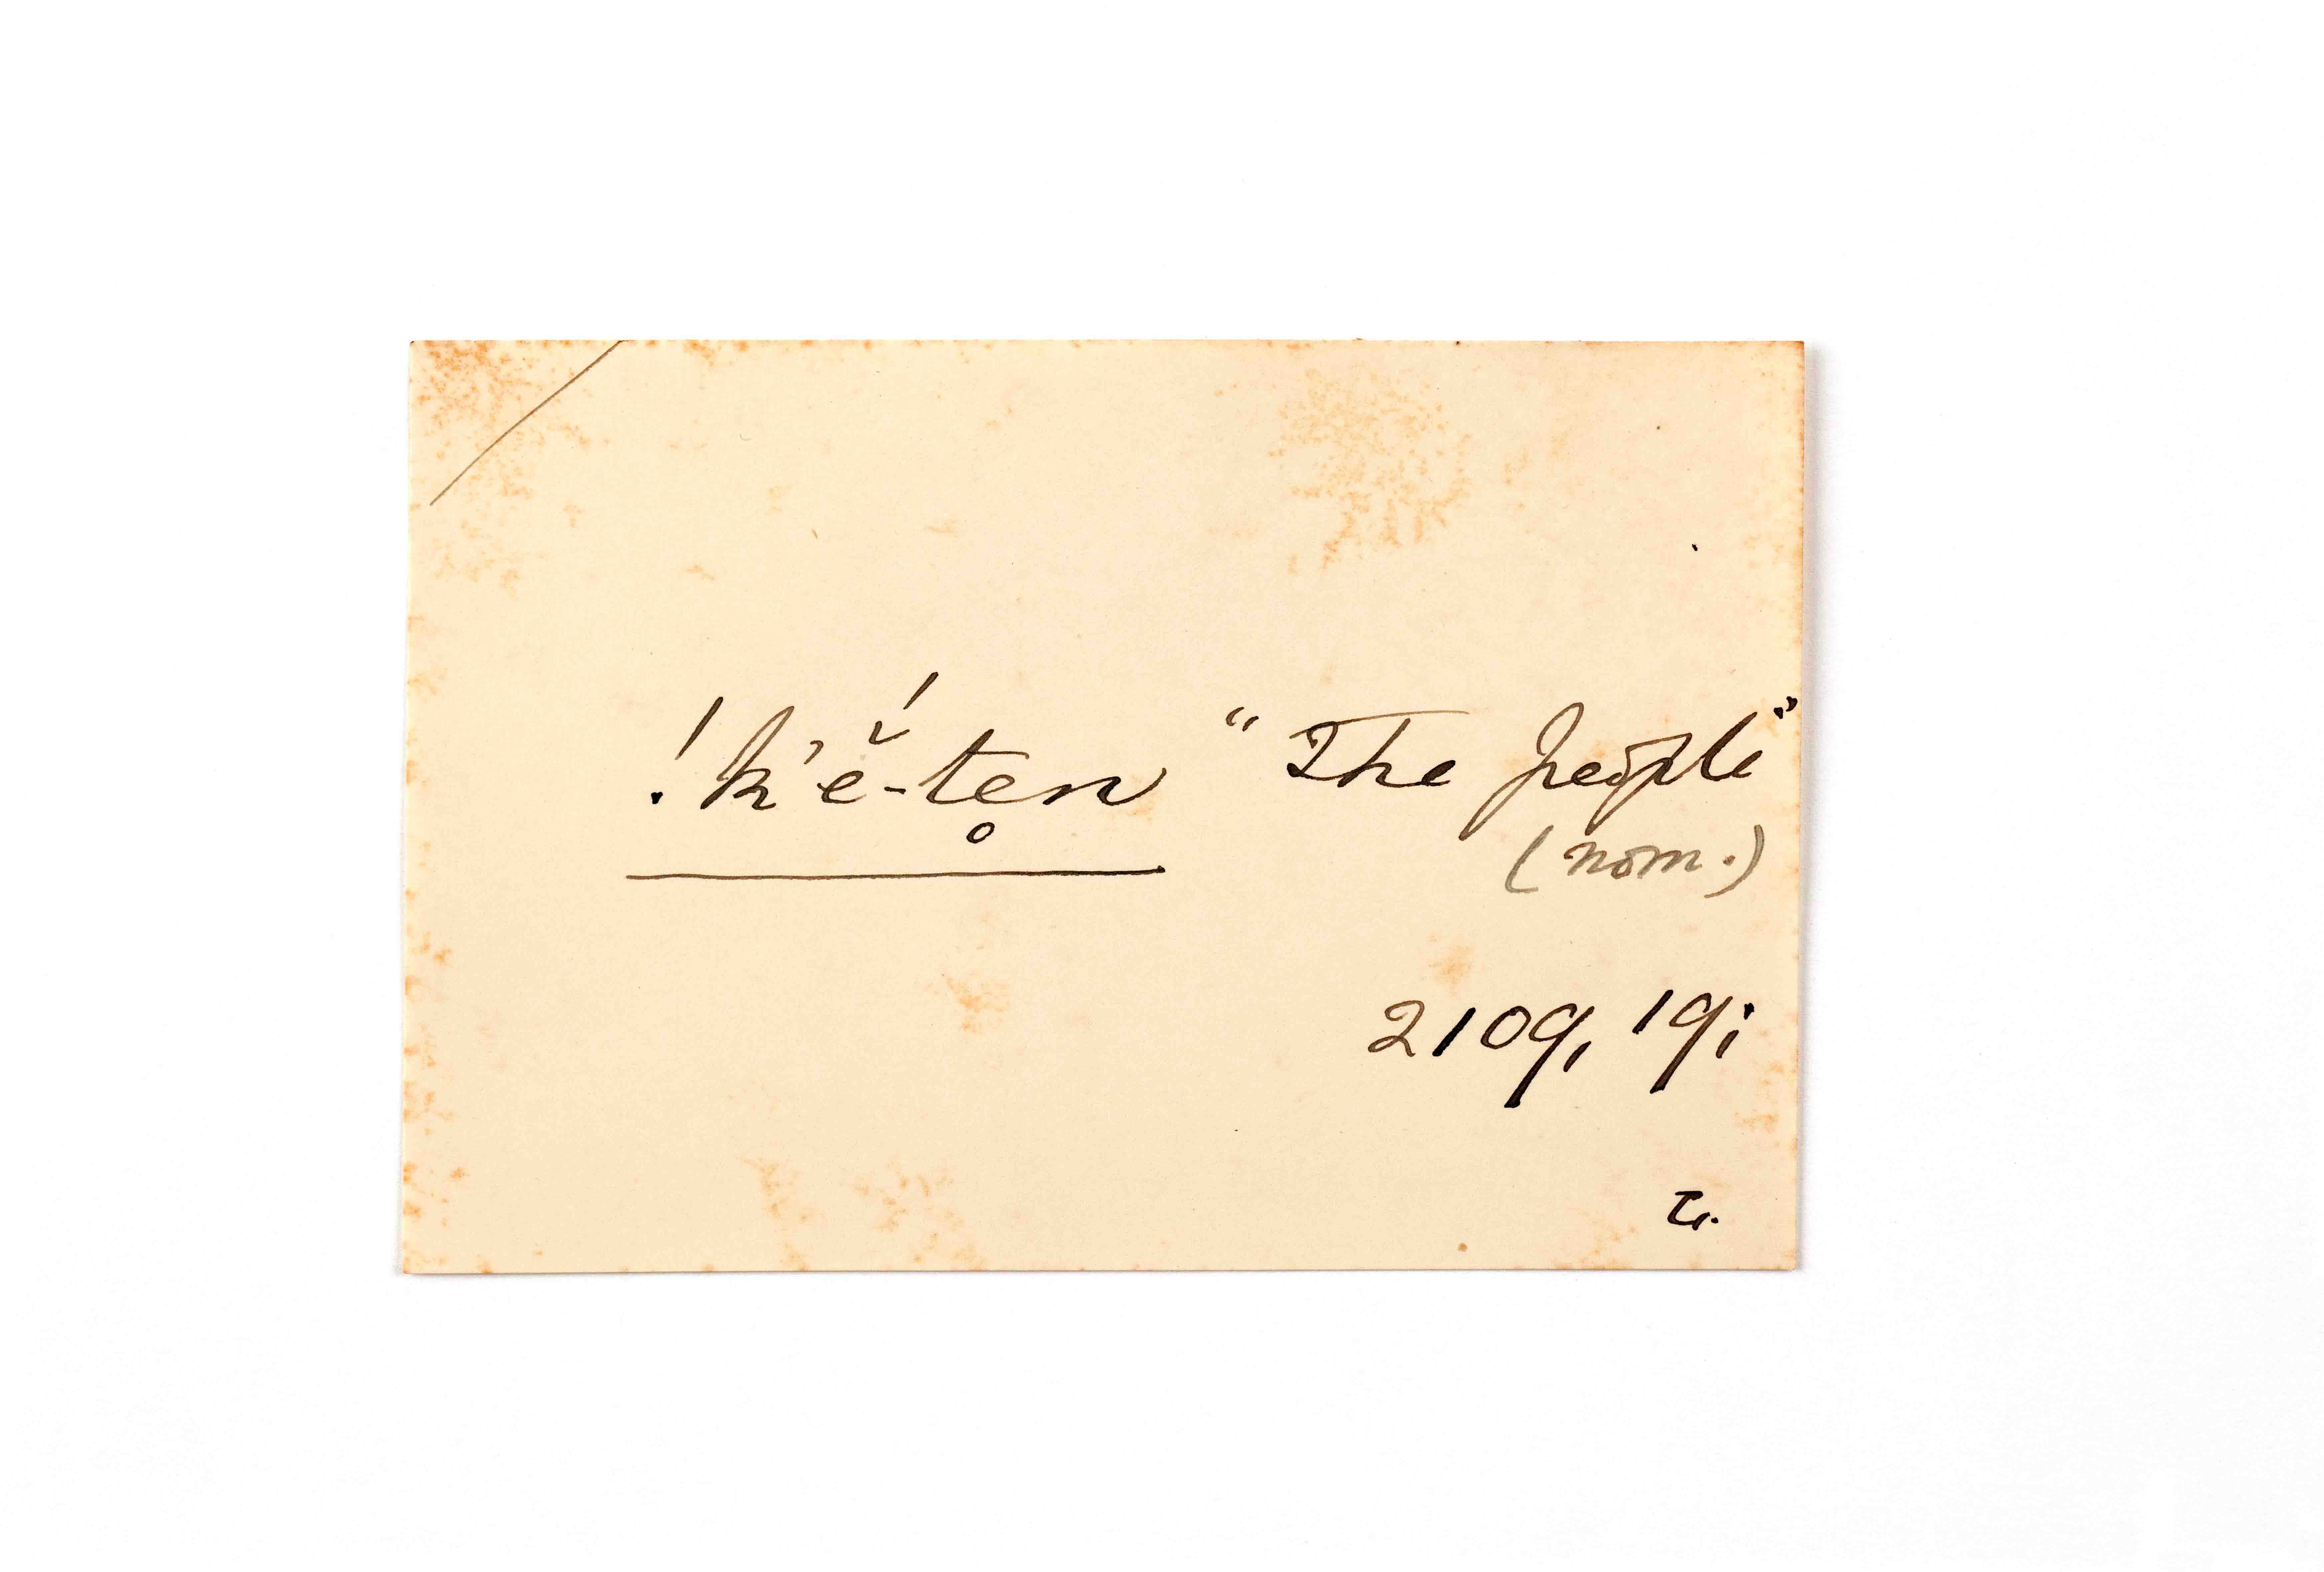 !k'ĕ́-te̥n "The people"
(nom.)
2109, 19;